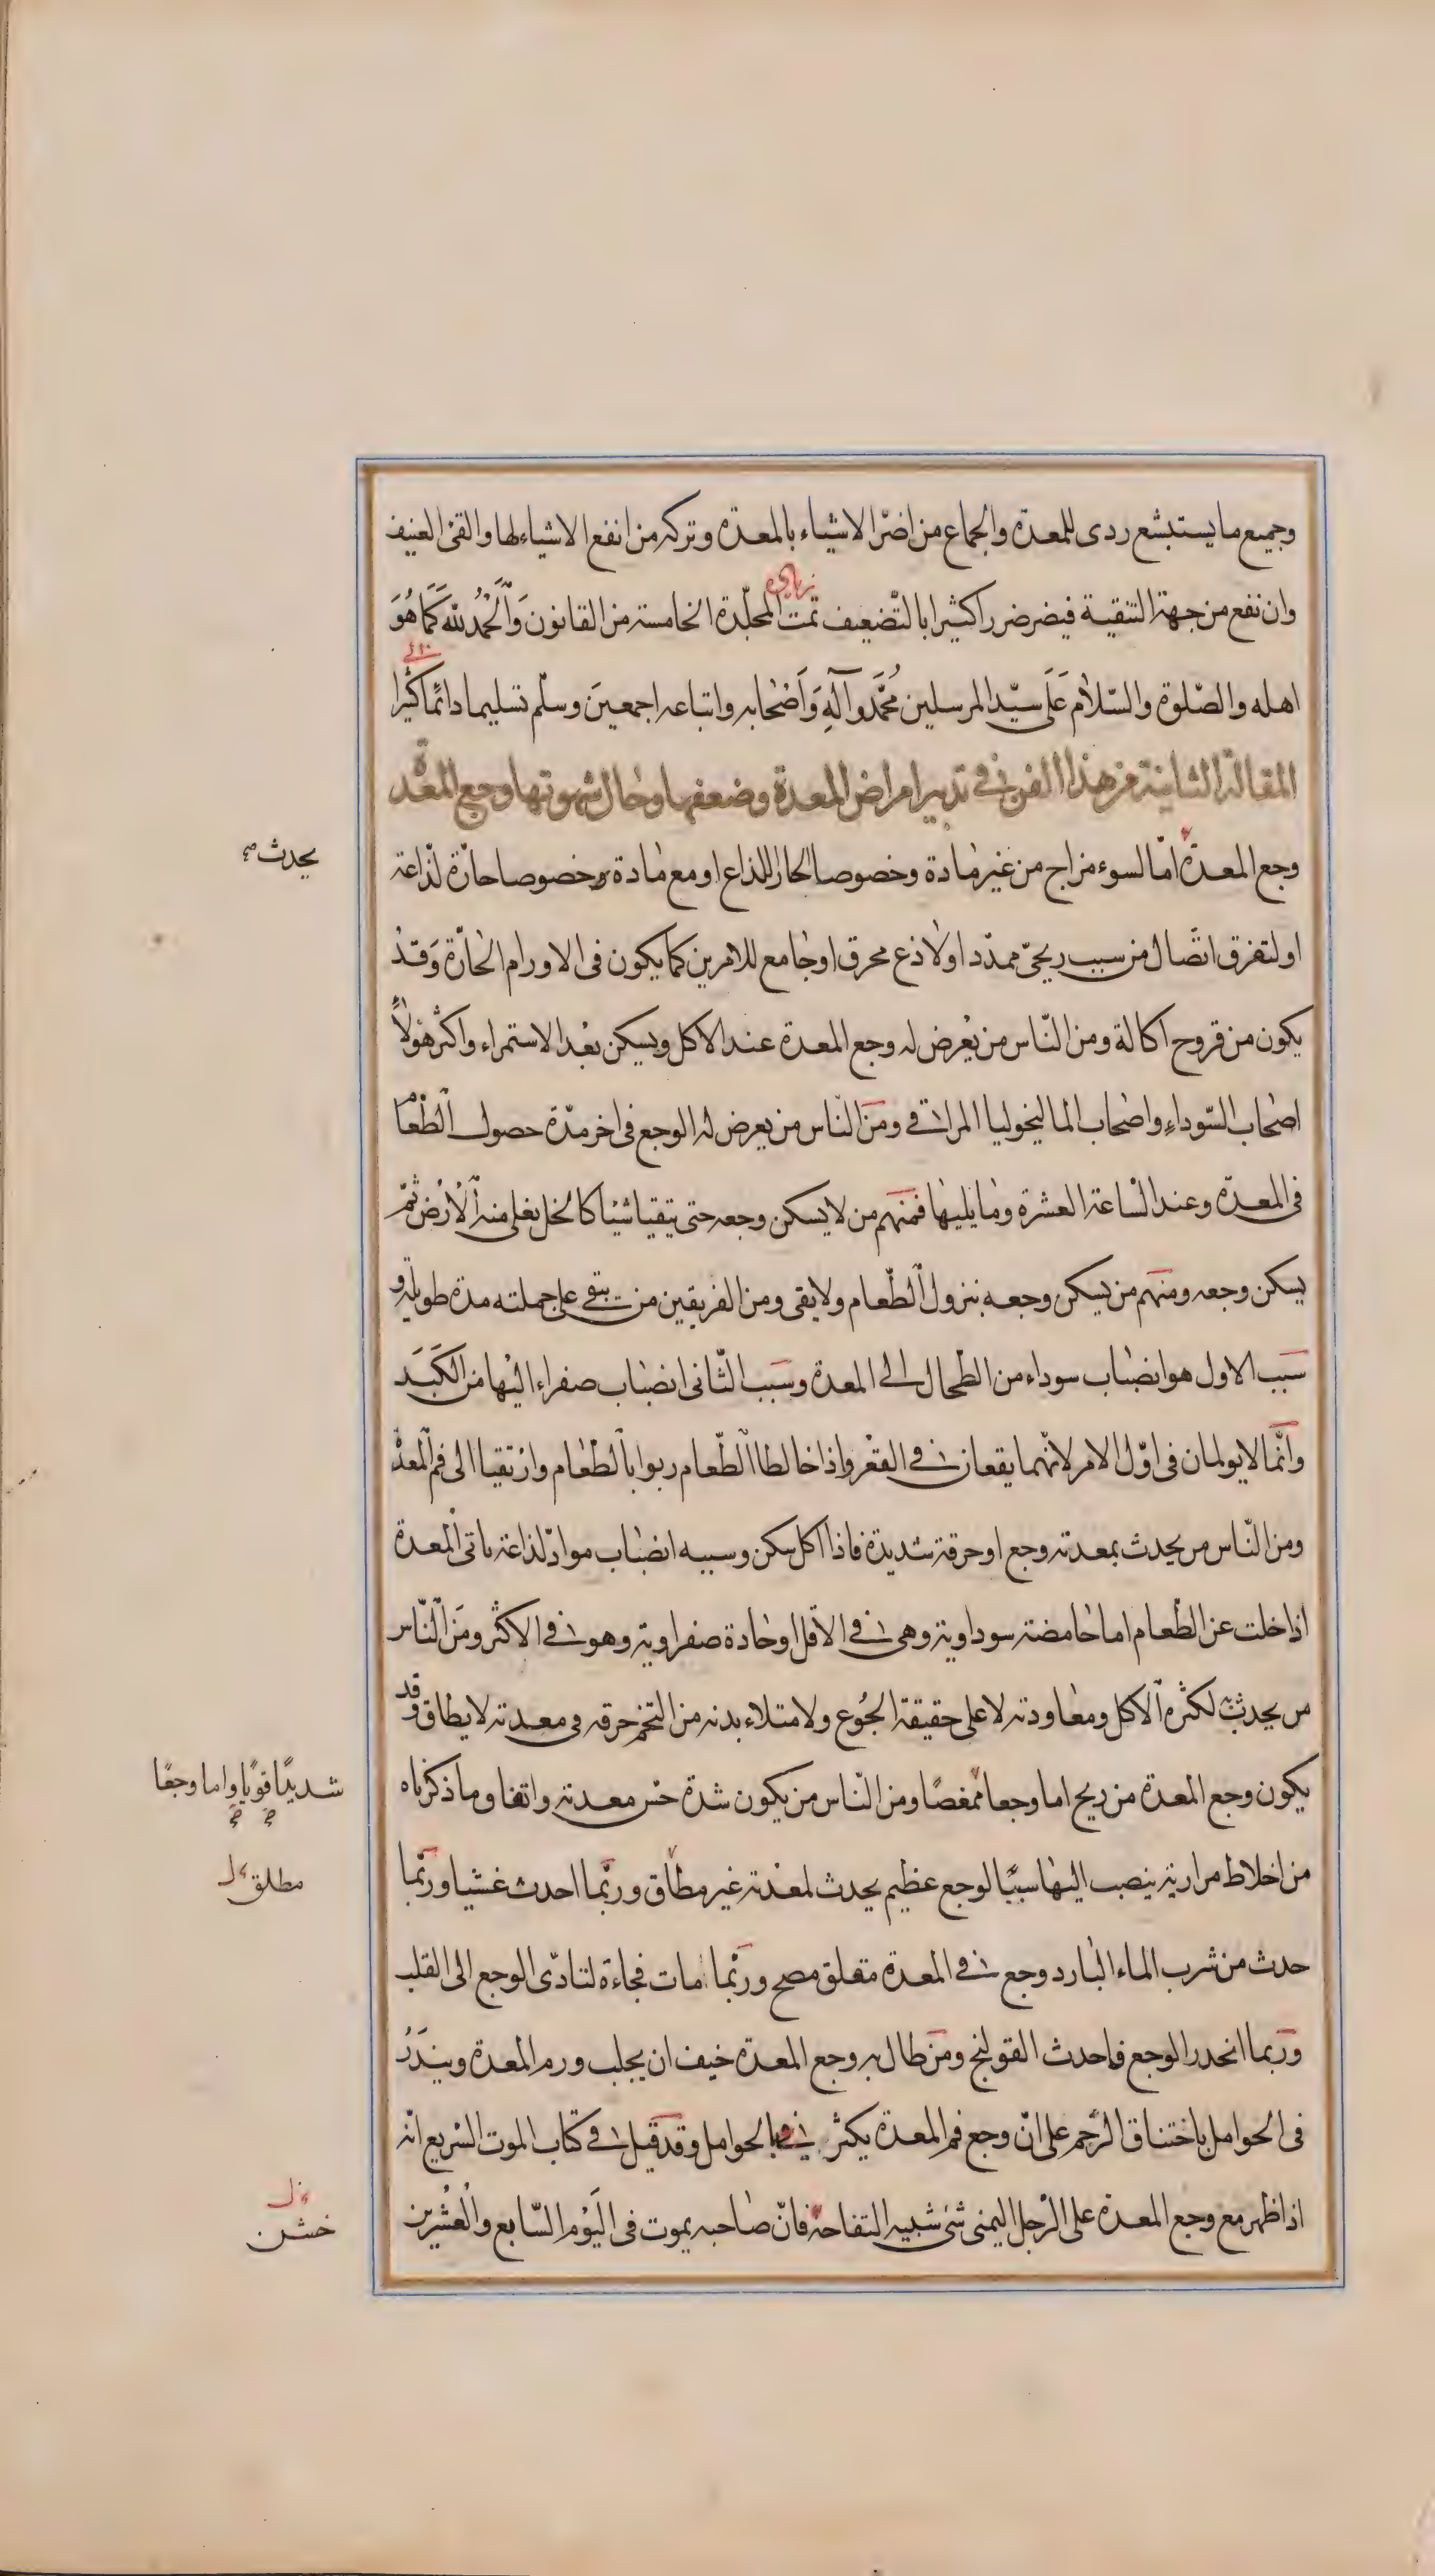 وجميع ما يستبشع ردى للمعدة والجماع من اضرّ الاشياء بالمعدة وتركه من انفع الاشياء لها والقئ العنيف
وان نفع من جهة التنقية فيضر ضررا كثيرا بالتّضعيف تمت المجلّدة الخامسة من القانون وَالْحَمْدُ لله كَمَا هُوَ
اهله والصّلوة والسّلام عَلَى سيّد المرسلين مُحَمَّد وَآلِهِ وَاَصْحابه واتباعه اجمعينَ وسلّم تسليما دائمًا كثيرا
المقالة الثانية من هذا الفن في تدبير امراض المعدة وضعفها وحال شهوتها وجع المعدة
وجع المعدة امّا لسوء مزاج من غير مادة وخصوصا الحار اللذاع او مع مادة وخصوصا حارّة لذّاعة
يحدث صح
او لتفرق اتّصال من سبب ريحىّ ممدّد او لاذع محرق او جامع للامرين كما يكون فى الاورام الحارّة وَقد
يكون من قروح اكالة ومن النّاس من يعْرض له وجع المعدة عند الاكل ويسكن بعْد الاستمراء واكثر هؤلاء
اصحاب السّوداءِ واصحاب الماليخوليا المراقى ومن النّاس من يعرض له الوجع فى اخر مدّة حصول الطّعام
فى المعدة وعند السّاعة العشرة وما يليها فمنهم من لا يسكن وجعه حتى يتقيا شيئا كالخل يغلى منه الْاَرْض ثمّ
يسكن وجعه ومنهم من يسكن وجعه بنزول الطّعام ولا يقى ومن الفريقين من يبقى على جملته مدة طويلة و
سبب الاول هو انصباب سوداء من الطحال الى المعدة وسبب الثّانى انصباب صفراء اليْها من الكَبَد
وانّما لا يولمان فى اوّل الامر لانّهما يقعان فى القعْر واذا خالطا الطّعام ربوا بالطّعام وارْتقيا الى فم المعدة
ومن النّاس من يحدث بمعدته وجع او حرقة شديدة فاذا اكل سكن وسببه انصباب موادّ لذاعة ياتى المعدة
اذا خلت عن الطّعام اما حامضة سوداوية وهى فى الاقل او حادة صفراوية وهو فى الاكثر ومن النّاس
من يحدث لكثرة الاكل ومعاودته لا على حقيقة الجُوع ولامتلاء بدنه من التخم حرقه فى معدته لا يطاق وقد
يكون وجع المعدة من ريح اما وجعا ممغصًا ومن النّاس من يكون شدة حسّ معدته واتفاق ما ذكرناه
شديدًا قويًا واما وجعًا صح صح
من اخلاط مرارية ينصب اليها سببًا لوجع عظيم يحدث لمعْدته غير مطاق وربّما احدث غشيا وربّما
مطلق ل
حدث من شرب الماء البارد وجع فى المعدة متعلق مصح وربّما مات فجاءة لتادّى الوجع الى القلب
وربما انحدر الوجع فاحدث القولنج ومن طال به وجع المعدة خيف ان يجلب ورم المعدة وينذر
فى الحوامل باختناق الرّحم على انّ وجع فم المعدة يكثر بالحوامل وقد قيل فى كتاب الموت السّريع انّه
اذا ظهر مع وجع المعدة على الرّجل اليمنى شئ شبيه التفاحة فانّ صاحبه يموت فى الْيَوْم السّابع والْعشرين
خشن ل